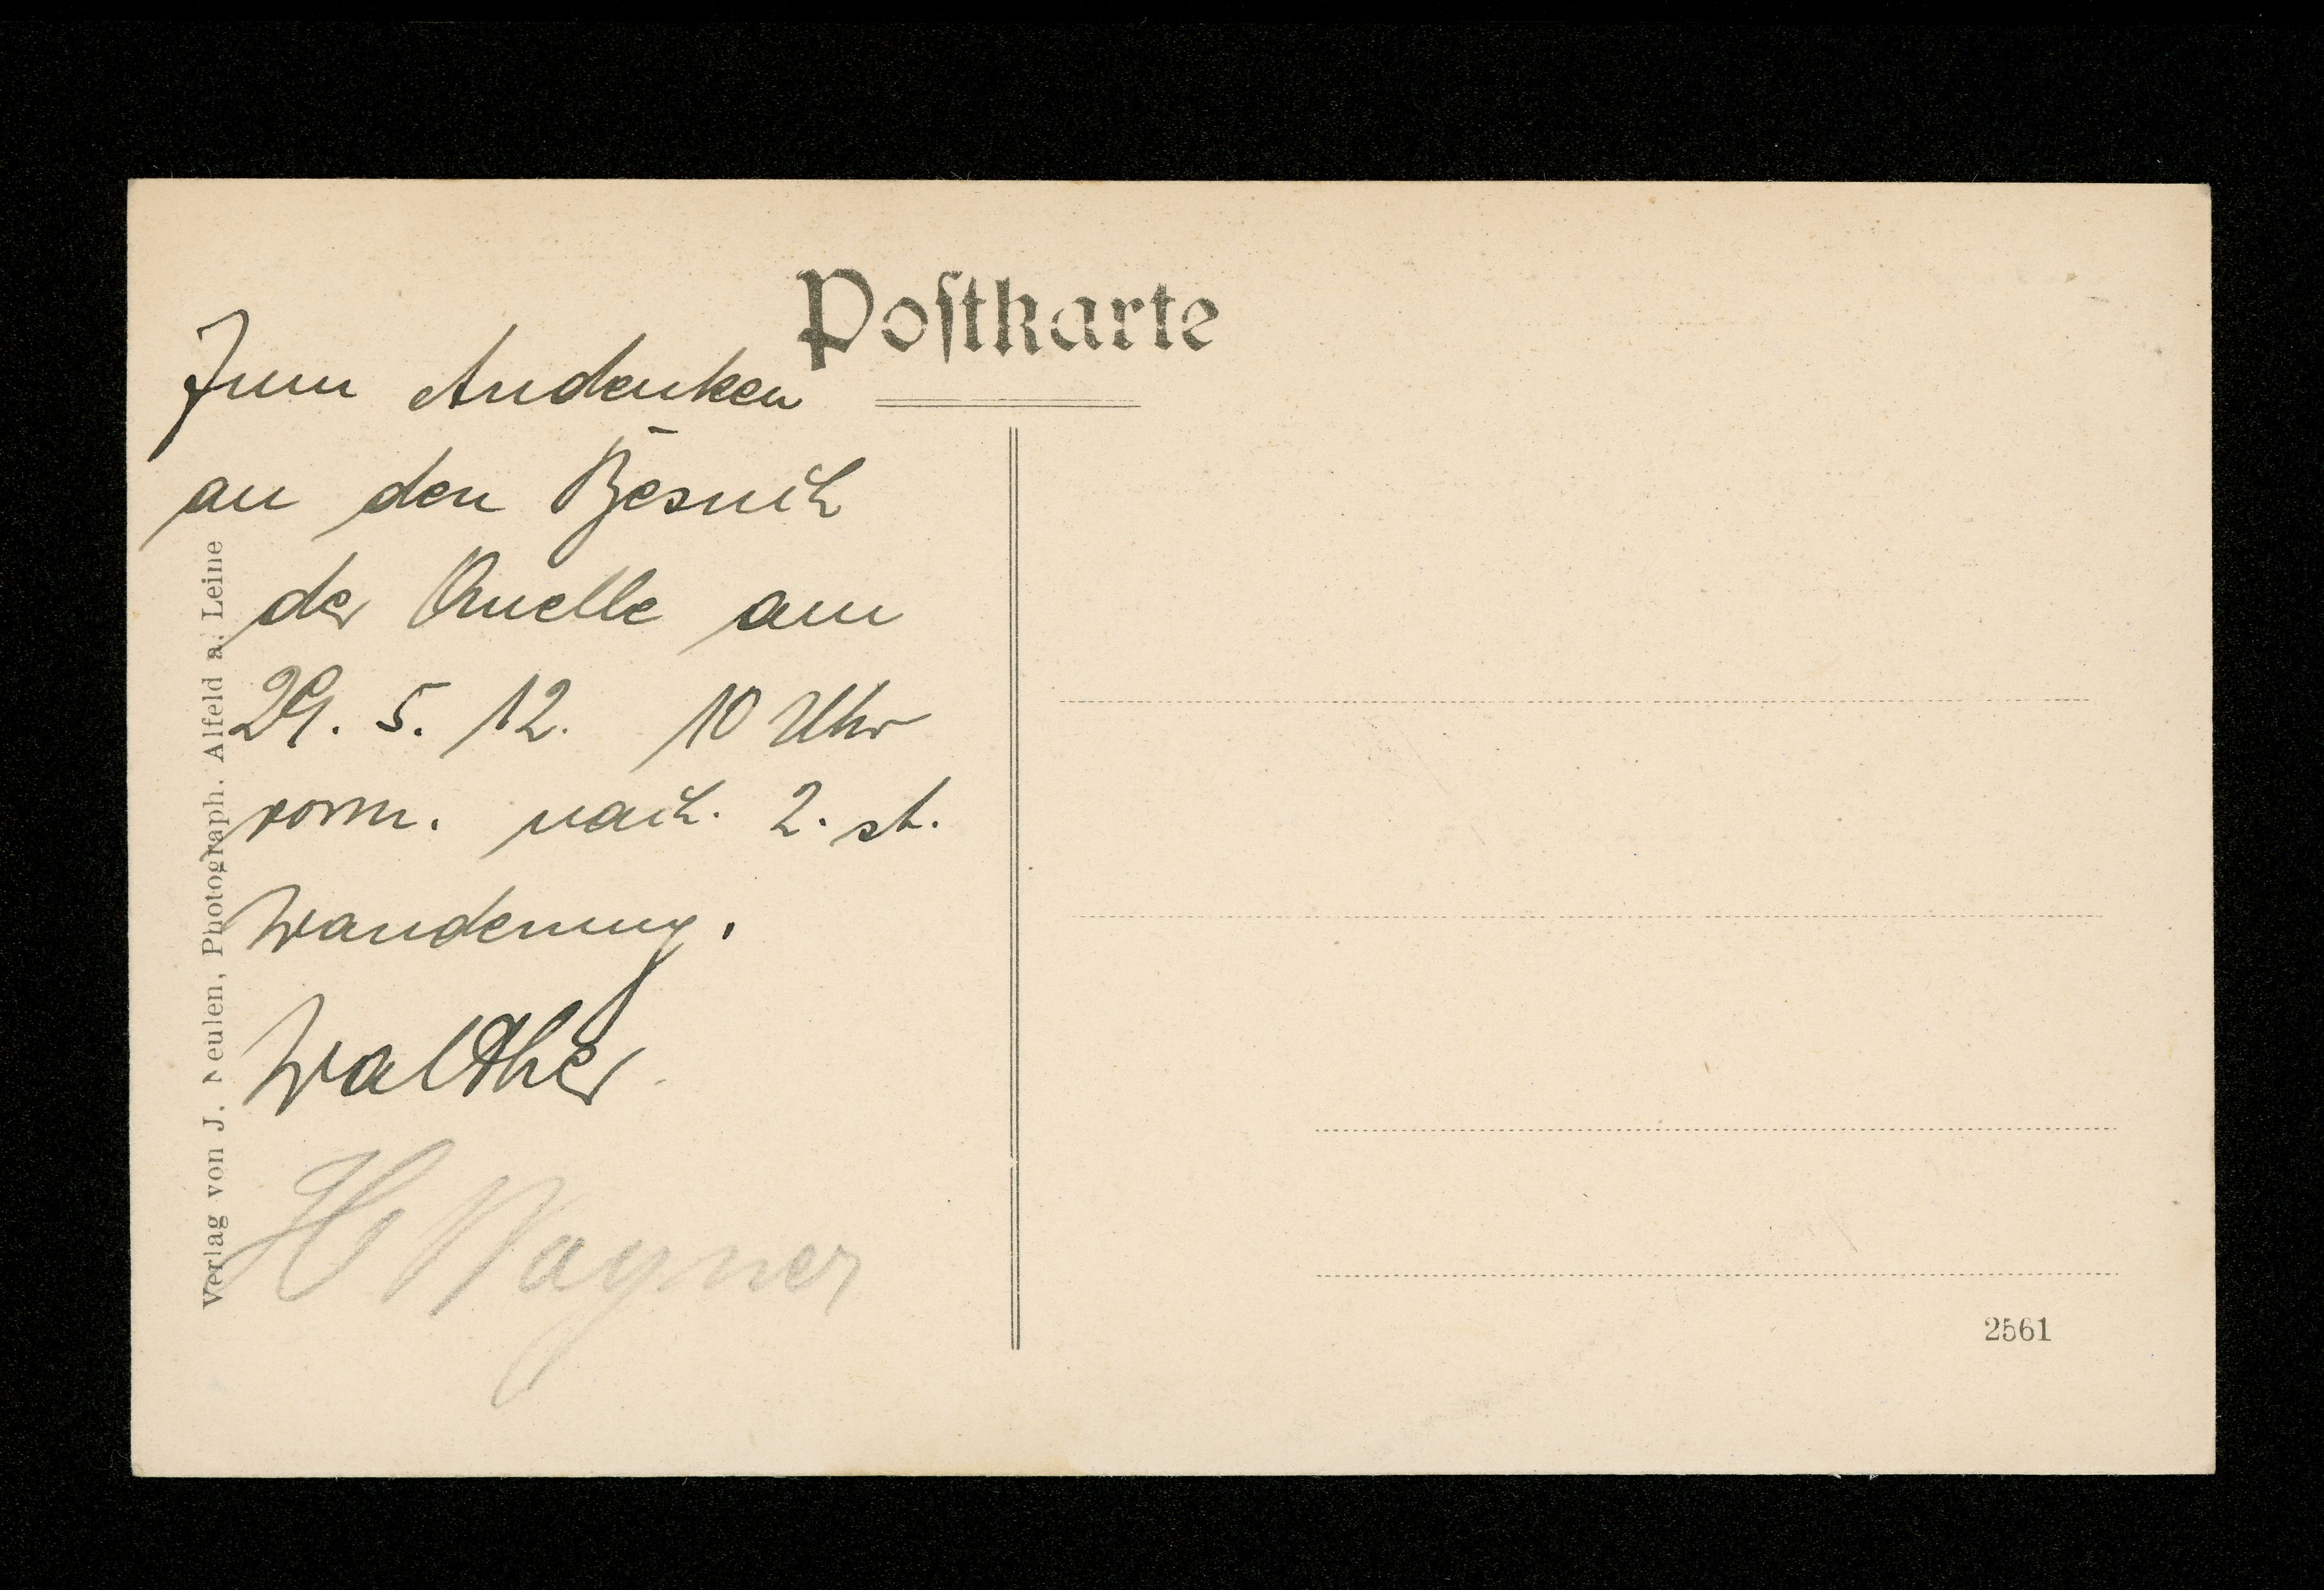 Postkarte
Zum Andenken
an den Besuch
der Quelle am
29. 5. 12. 10 Uhr
vorm. nach. 2. st.
Wanderung.
Walther
H Wagner
Verlag von J. Neulen, Photograph. Alfeld a. Leine
2561